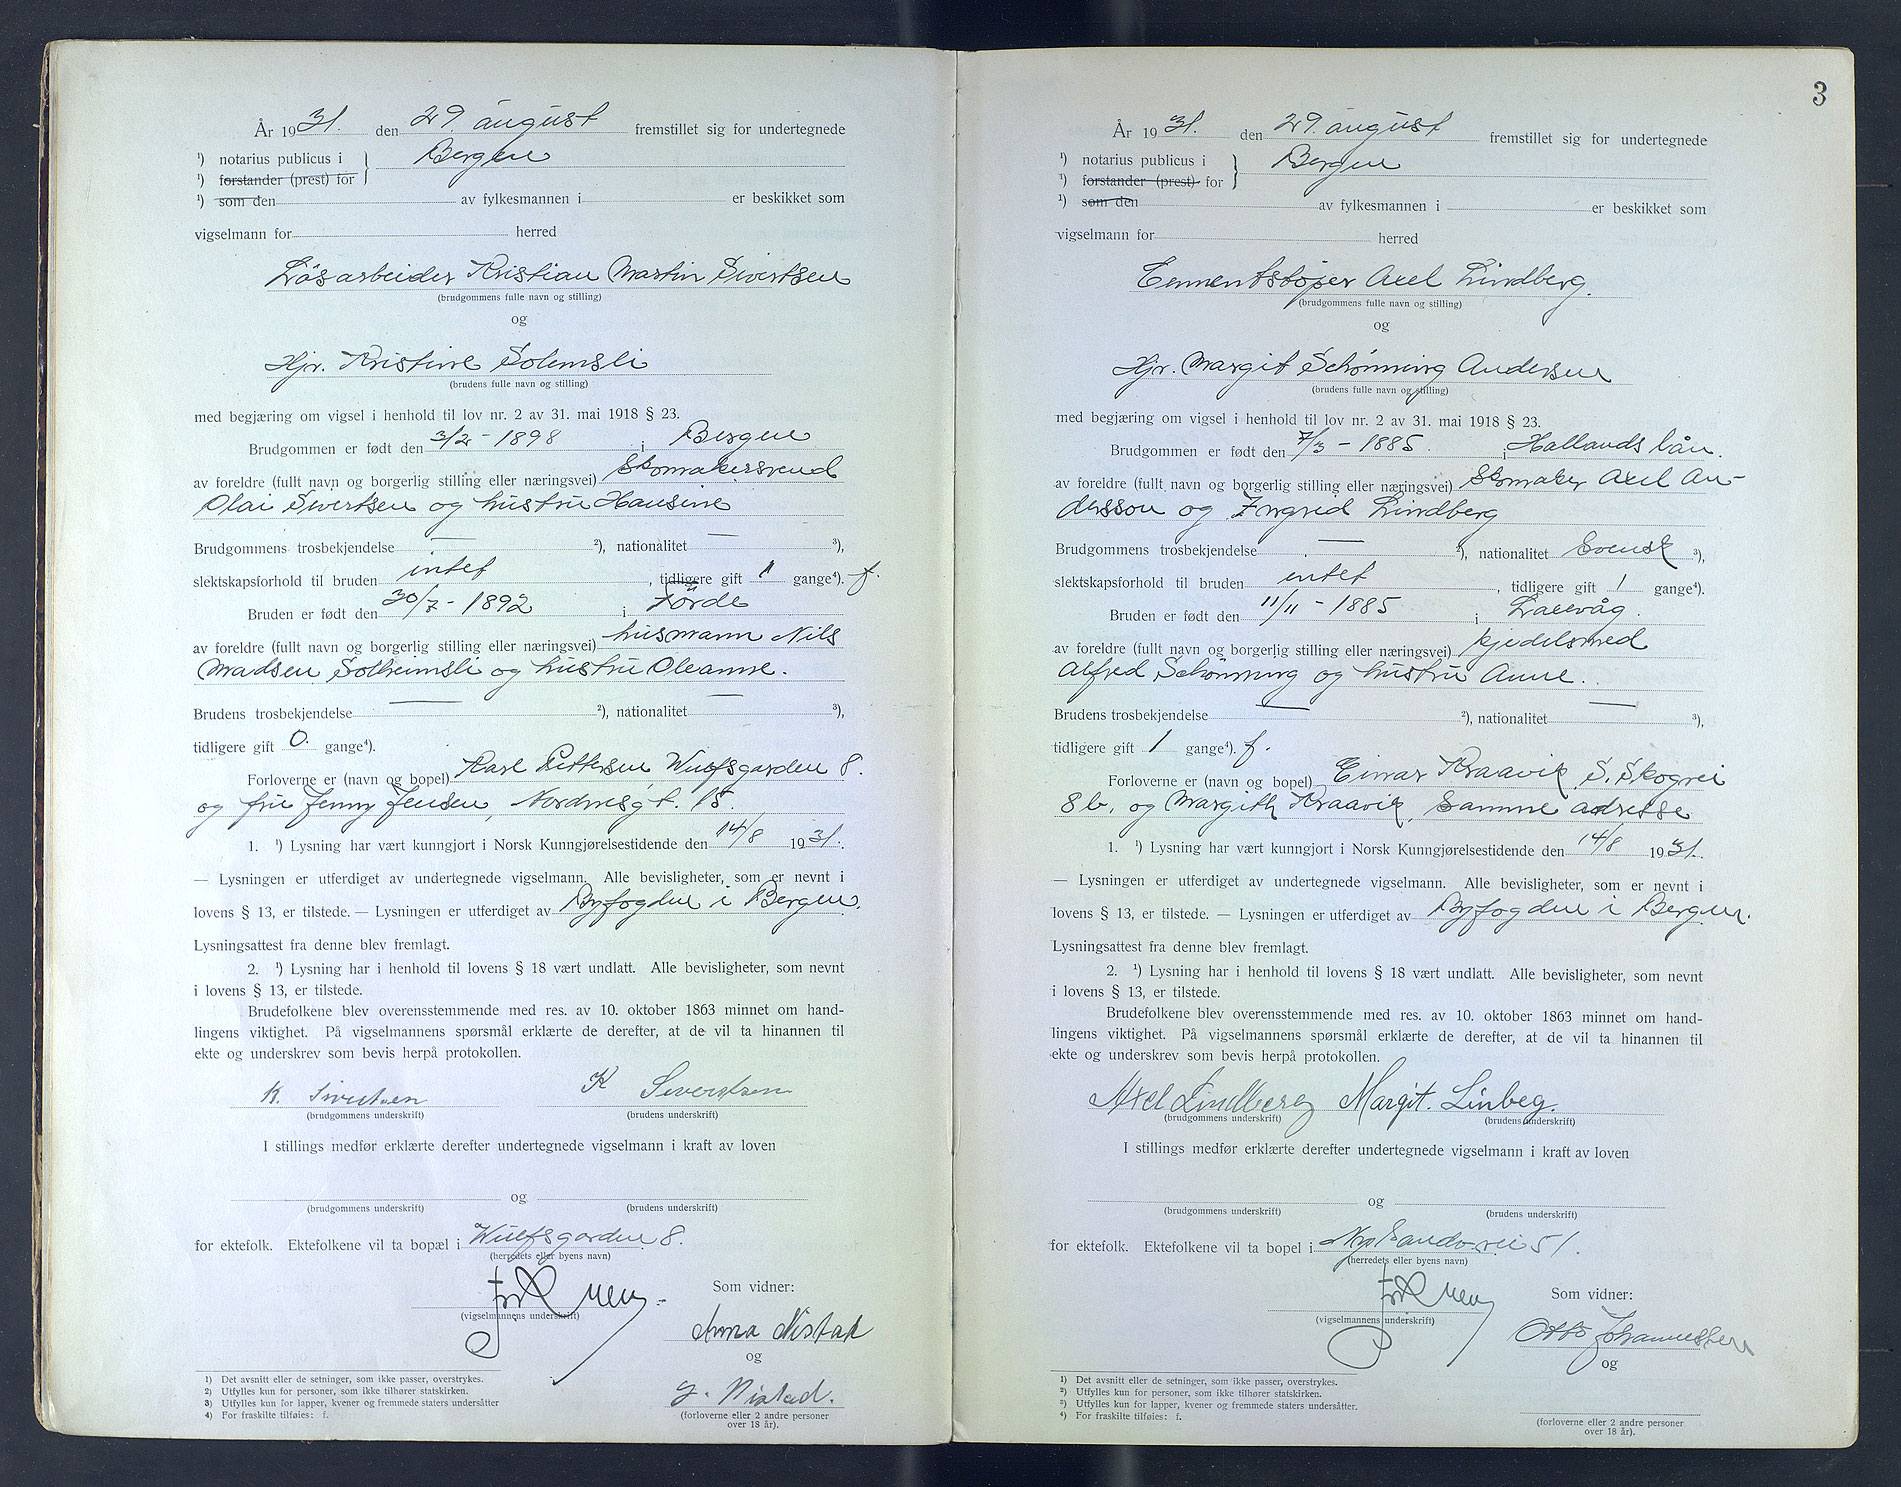 År 1931. den 29. august fremstillet sig for undertegnede
¹) notarius publicus i } Bergen
¹) forstander (prest) for
¹) som den av fylkesmannen i er beskikket som
vigselmann for herred
Løsarbeider Kristian Martin Sivertsen
(brudgommens fulle navn og stilling)
og
Hjr. Kristine Solemsli
(brudens fulle navn og stilling)
med begjæring om vigsel i henhold til lov nr. 2 av 31. mai 1918 § 23.
Brudgommen er født den 3/2 - 1898 i Bergen
av foreldre (fullt navn og borgerlig stilling eller næringsvei) Skomakersvend
Olai Sivertsen og hustru Hansine
Brudgommens trosbekjendelse — ²), nationalitet — ³),
slektskapsforhold til bruden intet, tidligere gift 1 gange⁴). f.
Bruden er født den 30/7 - 1892 i Førde
av foreldre (fullt navn og borgerlig stilling eller næringsvei) husmann Nils
Madsen Solheimsli og hustru Oleanne.
Brudens trosbekjendelse — ²), nationalitet — ³),
tidligere gift 0. gange⁴).
Forloverne er (navn og bopel) Karl Pettersen Wulfsgarden 8.
og fru Jenny Jensen, Nordnesgt. 15.
1. ¹) Lysning har vært kunngjort i Norsk Kunngjørelsestidende den 14/8 1931.
— Lysningen er utferdiget av undertegnede vigselmann. Alle bevisligheter, som er nevnt i
lovens § 13, er tilstede. — Lysningen er utferdiget av Byfogden i Bergen.
Lysningsattest fra denne blev fremlagt.
2. ¹) Lysning har i henhold til lovens § 18 vært undlatt. Alle bevisligheter, som nevnt
i lovens § 13, er tilstede.
Brudefolkene blev overensstemmende med res. av 10. oktober 1863 minnet om hand-
lingens viktighet. På vigselmannens spørsmål erklærte de derefter, at de vil ta hinannen til
ekte og underskrev som bevis herpå protokollen.
K. Sivertsen K Severtsen
(brudgommens underskrift) (brudens underskrift)
I stillings medfør erklærte derefter undertegnede vigselmann i kraft av loven
og
(brudgommens underskrift) (brudens underskrift)
for ektefolk. Ektefolkene vil ta bopæl i Wulfsgarden 8.
(herredets eller byens navn)
Som vidner:
(vigselmannens underskrift)
Anna Nistad
og
J. Nistad.
(forloverne eller 2 andre personer
over 18 år).
¹) Det avsnitt eller de setninger, som ikke passer, overstrykes.
²) Utfylles kun for personer, som ikke tilhører statskirken.
³) Utfylles kun for lapper, kvener og fremmede staters undersåtter
⁴) For fraskilte tilføies: f.
3
År 1931. den 29. august fremstillet sig for undertegnede
¹) notarius publicus i } Bergen
¹) forstander (prest) for
¹) som den av fylkesmannen i er beskikket som
vigselmann for herred
Cementstøper Axel Lindberg.
(brudgommens fulle navn og stilling)
og
Hjr. Margit Schønning Andersen
(brudens fulle navn og stilling)
med begjæring om vigsel i henhold til lov nr. 2 av 31. mai 1918 § 23.
Brudgommen er født den 7/3 - 1885 i Hallands län.
av foreldre (fullt navn og borgerlig stilling eller næringsvei) Skomaker Axel An-
dersson og Ingrid Lindberg
Brudgommens trosbekjendelse — ²), nationalitet Svensk ³),
slektskapsforhold til bruden intet, tidligere gift 1 gange⁴).
Bruden er født den 11/11 - 1885 i Laksevåg.
av foreldre (fullt navn og borgerlig stilling eller næringsvei) kjedelsmed
Alfred Schønning og hustru Anne.
Brudens trosbekjendelse — ²), nationalitet — ³),
tidligere gift 1 gange⁴). f.
Forloverne er (navn og bopel) Einar Kraavik, S. Skogvei
8b, og Margith Kraavik, samme adresse
1. ¹) Lysning har vært kunngjort i Norsk Kunngjørelsestidende den 14/8 1931.
— Lysningen er utferdiget av undertegnede vigselmann. Alle bevisligheter, som er nevnt i
lovens § 13, er tilstede. — Lysningen er utferdiget av Byfogden i Bergen.
Lysningsattest fra denne blev fremlagt.
2. ¹) Lysning har i henhold til lovens § 18 vært undlatt. Alle bevisligheter, som nevnt
i lovens § 13, er tilstede.
Brudefolkene blev overensstemmende med res. av 10. oktober 1863 minnet om hand-
lingens viktighet. På vigselmannens spørsmål erklærte de derefter, at de vil ta hinannen til
ekte og underskrev som bevis herpå protokollen.
Axel Lindberg Margit. Linbeg.
(brudgommens underskrift) (brudens underskrift)
I stillings medfør erklærte derefter undertegnede vigselmann i kraft av loven
og
(brudgommens underskrift) (brudens underskrift)
for ektefolk. Ektefolkene vil ta bopel i 51.
(herredets eller byens navn)
Som vidner:
(vigselmannens underskrift)
Otto Johannessen
og
(forloverne eller 2 andre personer
over 18 år).
¹) Det avsnitt eller de setninger, som ikke passer, overstrykes.
²) Utfylles kun for personer, som ikke tilhører statskirken.
³) Utfylles kun for lapper, kvener og fremmede staters undersåtter.
⁴) For fraskilte tilføies: f.